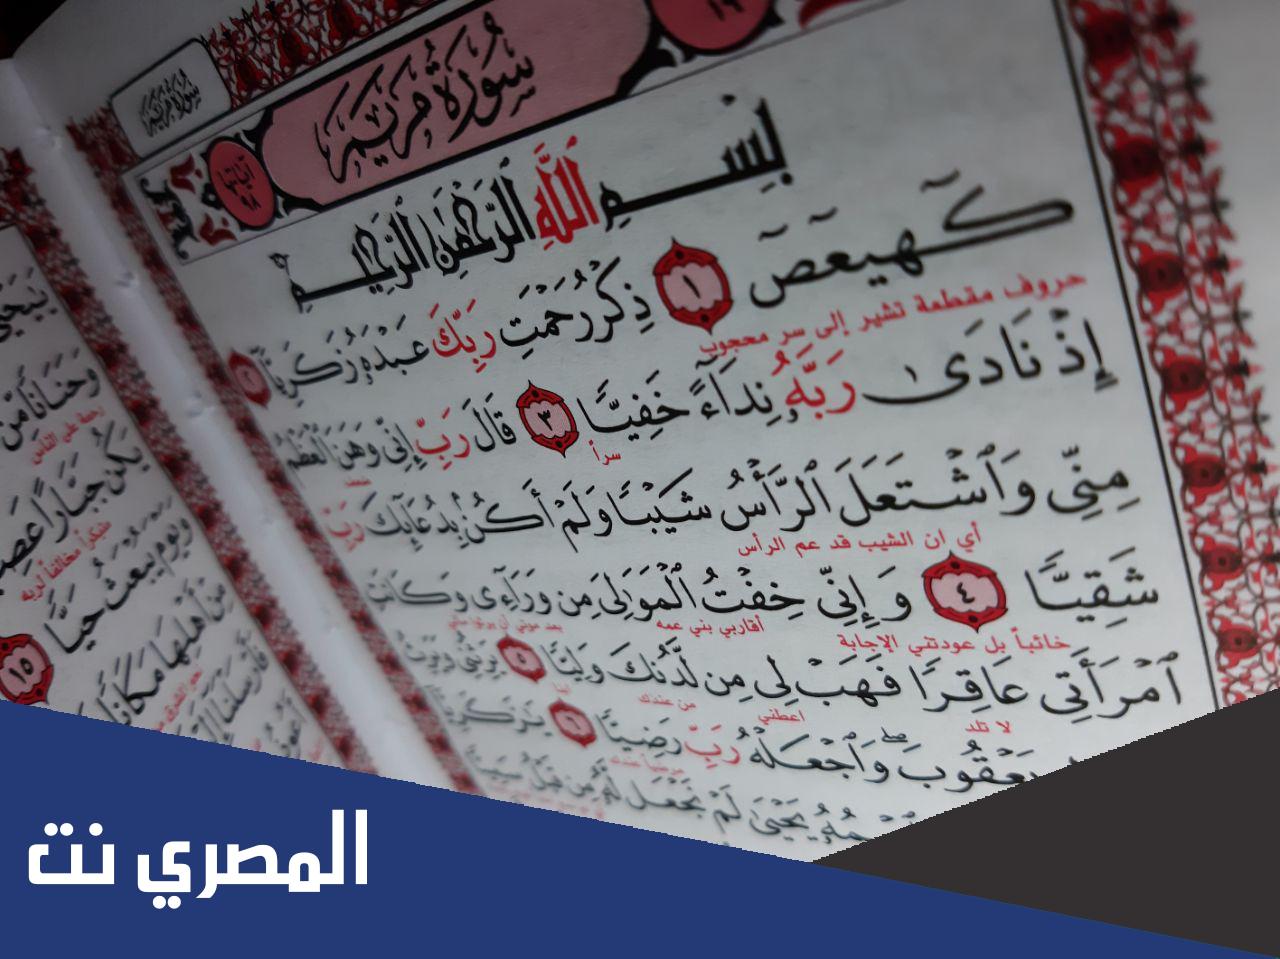 سُورَةُ مَرْيَمَ
سُورَةُ مَرْيَمَ
١٩
آياتها ٩٨
بِسْمِ اللَّهِ الرَّحْمَٰنِ الرَّحِيمِ
كٓهيعٓصٓ ١ ذِكْرُ رَحْمَتِ رَبِّكَ عَبْدَهُۥ زَكَرِيَّآ ٢
حروف مقطعة تشير إلى سر محجوب
إِذْ نَادَىٰ رَبَّهُۥ نِدَآءً خَفِيًّا ٣ قَالَ رَبِّ إِنِّى وَهَنَ ٱلْعَظْمُ
سراً ضعف
مِنِّى وَٱشْتَعَلَ ٱلرَّأْسُ شَيْبًا وَلَمْ أَكُنۢ بِدُعَآئِكَ رَبِّ
أي ان الشيب قد عم الرأس
شَقِيًّا ٤ وَإِنِّى خِفْتُ ٱلْمَوَٰلِىَ مِن وَرَآءِى وَكَانَتِ
خائباً بل عودتني الإجابة أقاربي بني عمه
ٱمْرَأَتِى عَاقِرًا فَهَبْ لِى مِن لَّدُنكَ وَلِيًّا ٥ يَرِثُنِى وَيَرِثُ
لا تلد اعطني من عندك ابنا
يَعْقُوبَ وَٱجْعَلْهُ رَبِّ رَضِيًّا ٦ يَٰزَكَرِيَّآ
مرضياً عندك
يَحْيَىٰ لَمْ نَجْعَل لَّهُۥ مِن قَبْلُ سَمِيًّا
وَحَنَانًا مِّن
رحمة على الناس
يَكُن جَبَّارًا عَصِ
متكبراً مخالفاً لربه
وَيَوْمَ يُبْعَثُ حَيًّا ١٥
مِنْ أَهْلِهَا مَكَانًا
فَأَرْسَلْنَآ
المصري نت